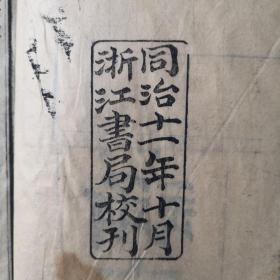 同治十一年十月
浙江書局校刊